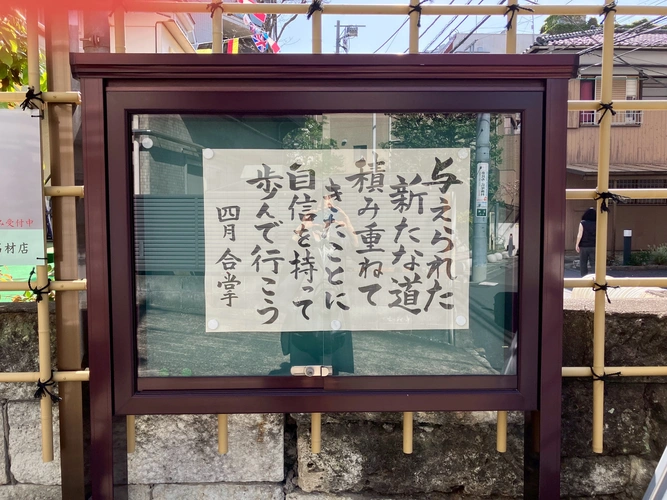 与えられた
新たな道
積み重ねて
きたことに
自信を持って
歩んで行こう
四月 合掌
受付中
石材店